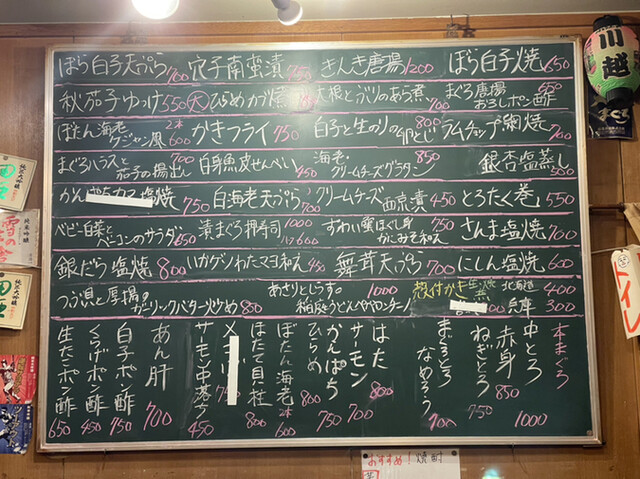 ぼら白子天ぷら 700 穴子南蛮漬 750 きんき唐揚 1200 ぼら白子焼 650
秋茄子ゆっけ 550 大 ひらめかぶ煮 大根とぶりのあら煮 700 まぐろ唐揚おろしポン酢 650
ぼたん海老ケジャン風 2本 600 かきフライ 750 白子と生のりの卵とじ 800 ラムチップ網焼 700
まぐろハラスと茄子の揚出し 700 白身魚皮せんべい 450 海老・クリームチーズグラタン 850 銀杏塩蒸し 500
塩焼 750 白海老天ぷら 700 クリームチーズ西京漬 450 とろたく巻 550
ベビー白菜とベーコンのサラダ 650 漬まぐろ押寿司 1000 ハーフ 600 ずわい蟹ほぐし身かにみそ和え 750 さんま塩焼 700
銀だら塩焼 800 いかゲソわたマヨ和え 450 舞茸天ぷら 700 にしん塩焼 600
つぶ貝と厚揚のガーリックバター炒め 850 あさりとしらす。 1000 稲庭うどんペペロンチーノ 殻付かき 生・焼 北海道 400 兵庫 300
本まぐろ
中とろ 1000
赤身 850
ねぎとろ 750
まぐろとろなめろう 700
はた 800
サーモン 700
かんぱち 750
ひらめ 800
ぼたん海老 2本 600
ほたて貝柱 800
サーモン中落ち 450
あん肝 700
白子ポン酢 750
くらげポン酢 450
生たこポン酢 650
川越
まぐろ
トイレ
おすすめ！焼酎
純米大吟醸
純米吟醸
純米大吟醸